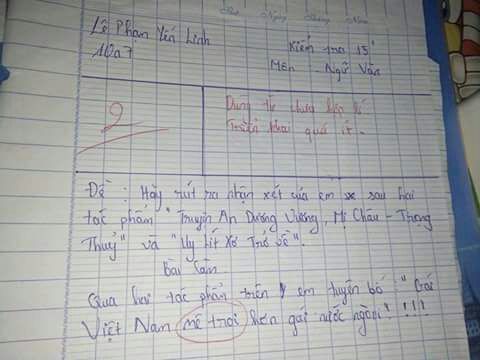 Thứ Ngày Tháng Năm
Lê Phan Yến Linh
Kiểm tra 15'
10a7
Môn : Ngữ Văn
2
Dùng từ chưa hợp lí
Triển khai quá ít.
Đề : Hãy rút ra nhận xét của em sau hai
tác phẩm "Truyện An Dương Vương, Mị Châu - Trọng
Thuỷ" và "Uy lít xơ Trở về".
Bài làm
Qua hai tác phẩm trên, em tuyên bố : "Gái
Việt Nam mê trai hơn gái nước ngoài" !!!